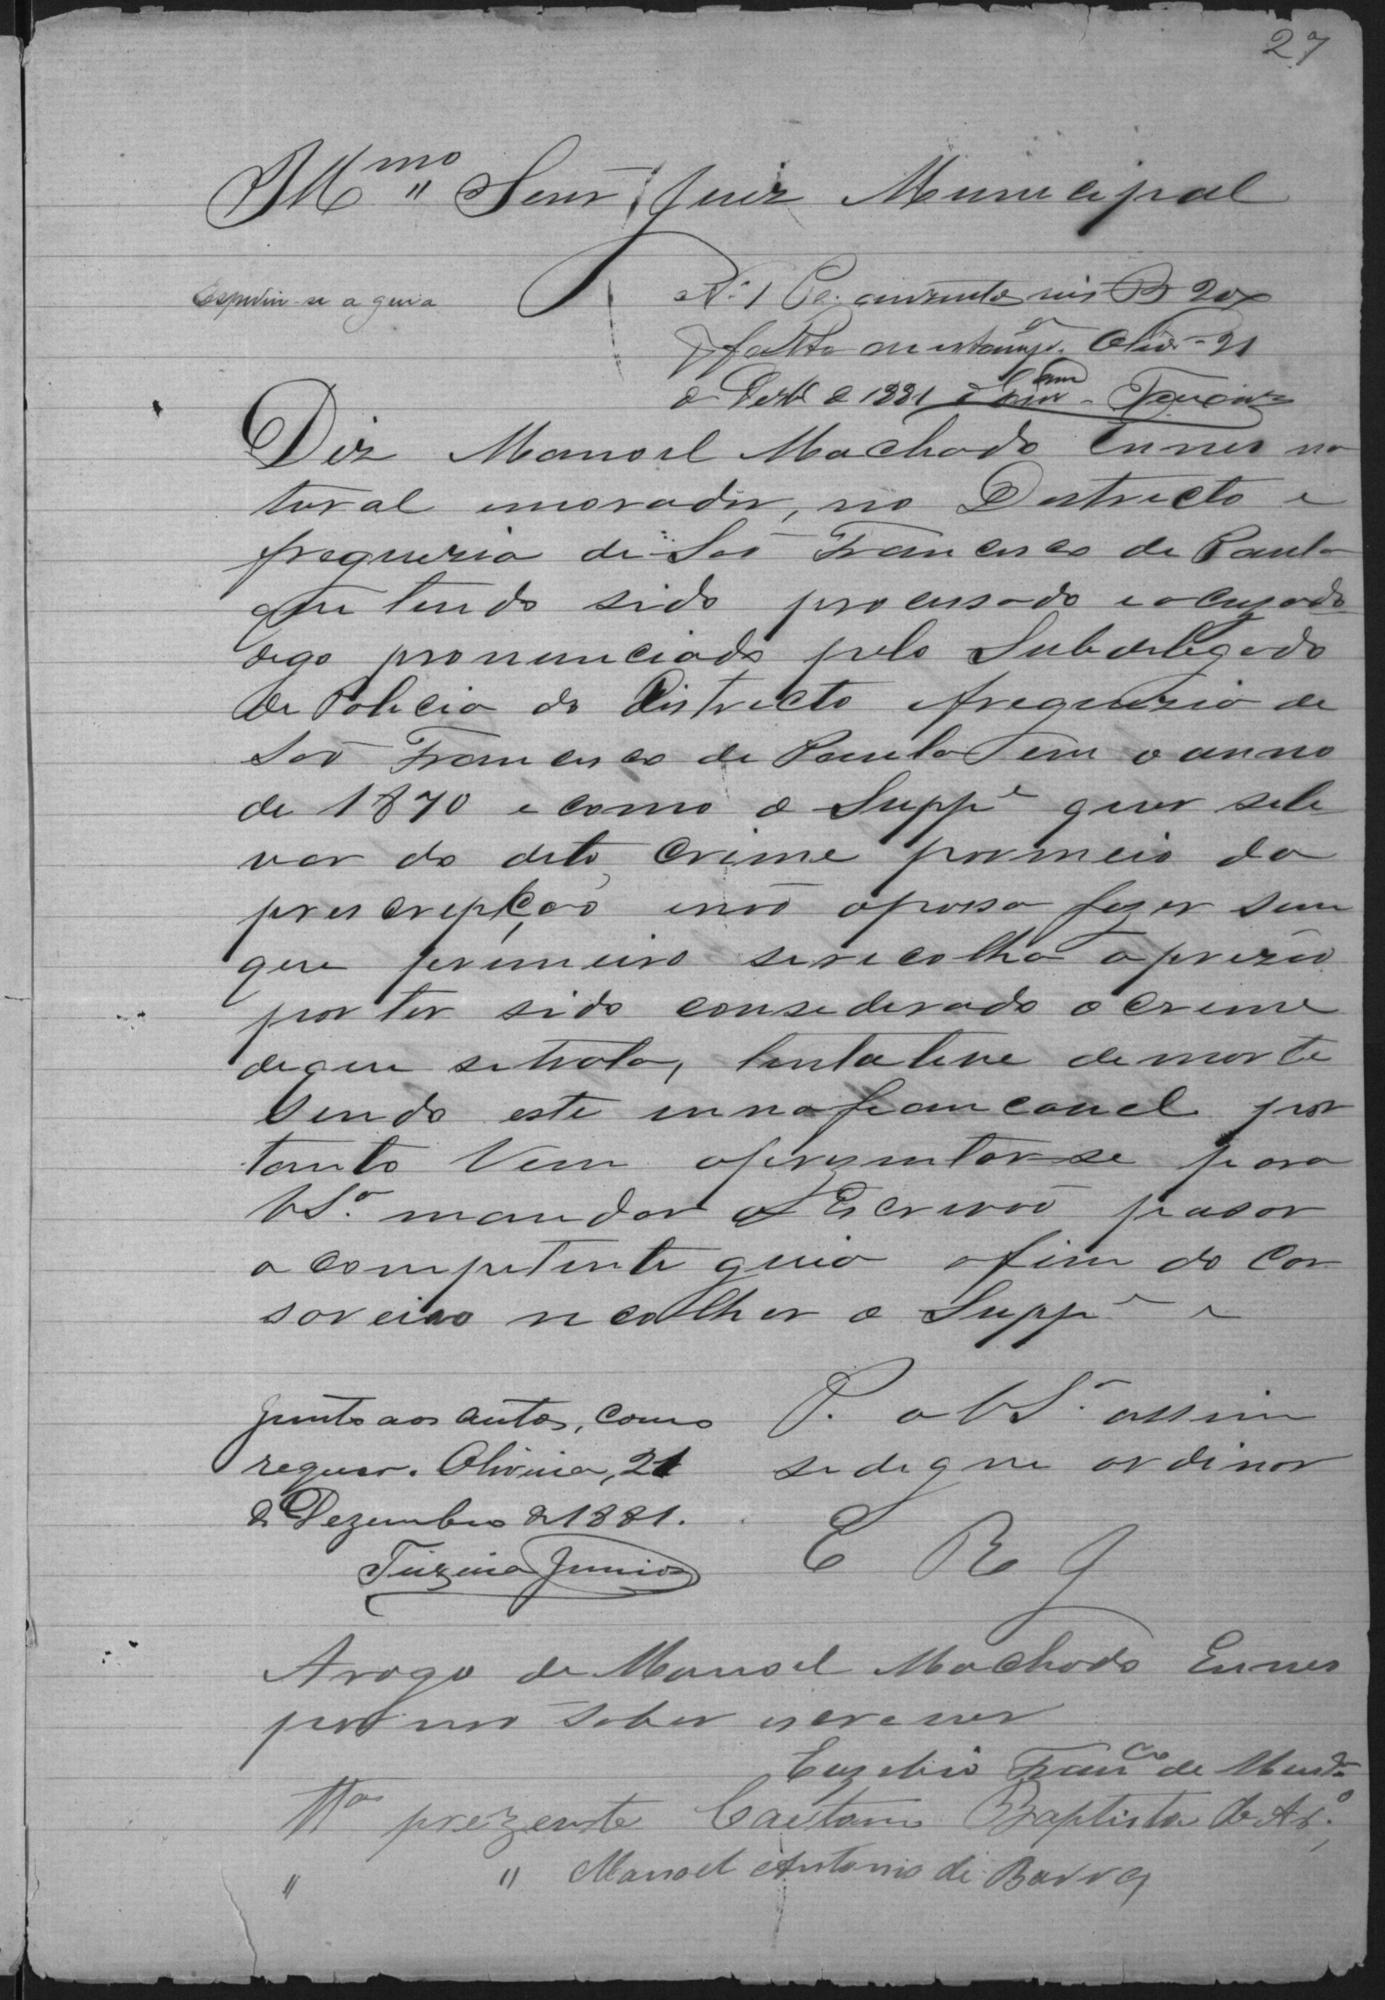 27
Illmo Senr Juiz Municipal
Espedir-se a guia
N. 1 Rs. 200
de 1881
Diz Manoel Machado Ennes na
tural emorador, no Destricto e
freguezia de São Francisco de Paula
que tendo sido procesado eacuzado
digo pronunciado pelo Subdelegado
de Policia do Districto efreguezia de
São Francisco de Paula em o anno
de 1870 e como o Suppe quer seli
var do dito crime pormeio da
prescrepção enão opossa fazer sem
que premeiro serecolha aprezão
por ter sido considerado o creme
deque setrata, tentative demorte
sendo este innafiancavel por
tanto Vem aprezentar-se para
VSa. mandar o Escrivão pasar
a competente guia afim do Car
sareiro recolher o Suppe e
P. a VSa. assim
sedigne ordinar
E R J
Junto aos autos, como
requer. Oliveira, 21
de Dezembro de 1881.
Teixeira Junior
Arogo de Manoel Machado Ennes
por não saber escrever
Euzebio Franco de Mendca
Ttas prezente Caetano Baptista de Aro.,
" " Manoel Antonio de Barros